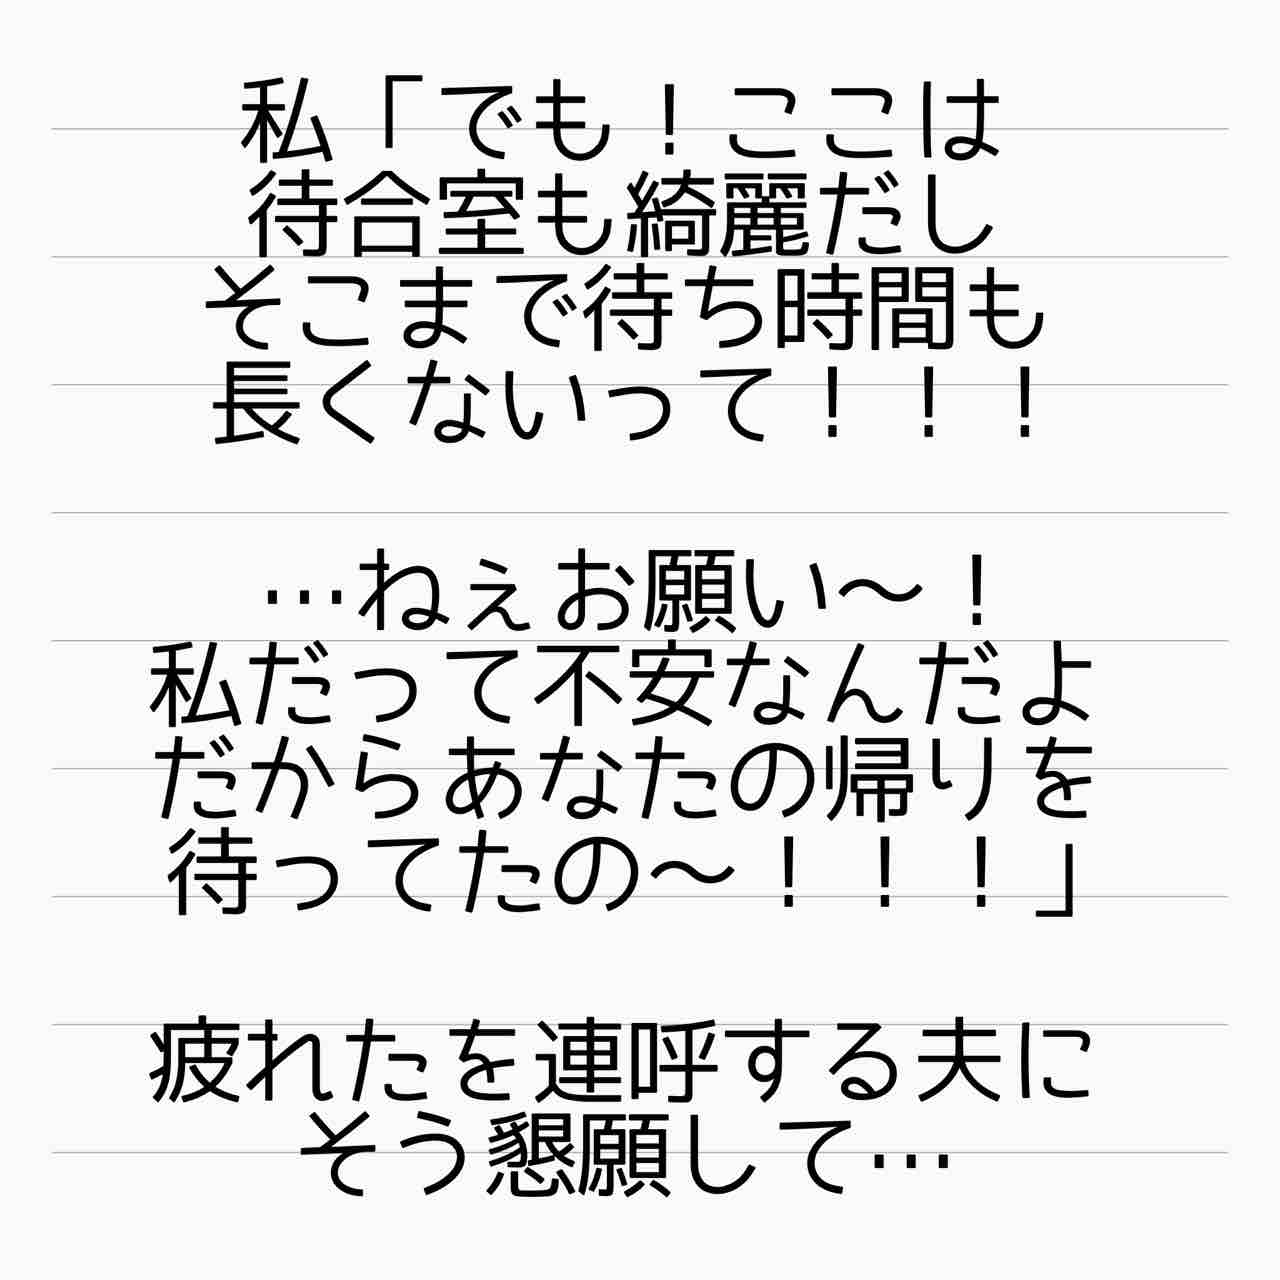 私「でも！ここは
待合室も綺麗だし
そこまで待ち時間も
長くないって！！！
…ねぇお願い〜！
私だって不安なんだよ
だからあなたの帰りを
待ってたの〜！！！」
疲れたを連呼する夫に
そう懇願して…